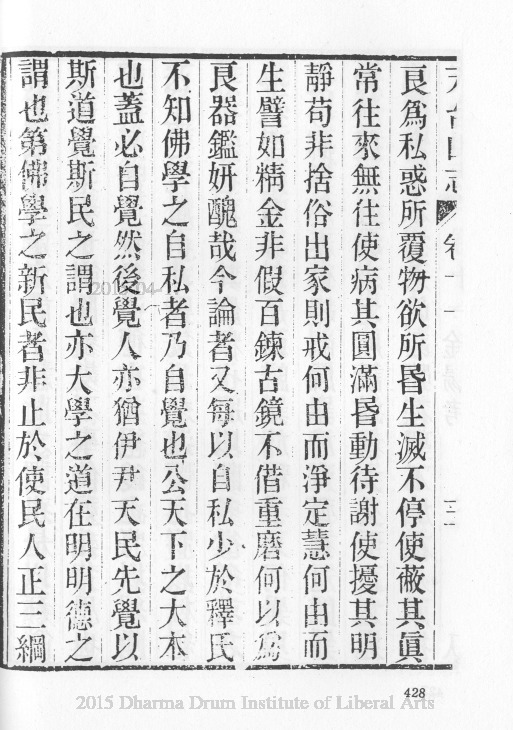 天台山志 卷十
良爲私惑所覆物欲所昏生滅不停使蔽其眞
常往來無往使病其圓滿昏動待謝使擾其明
靜苟非捨俗出家則戒何由而淨定慧何由而
生譬如精金非假百鍊古鏡不借重磨何以爲
良器鑑妍醜哉今論者又每以自私少於釋氏
不知佛學之自私者乃自覺也公天下之大本
也蓋必自覺然後覺人亦猶伊尹天民先覺以
斯道覺斯民之謂也亦大學之道在明明德之
謂也第佛學之新民者非止於使民人正三綱
428
2015 Dharma Drum Institute of Liberal Arts